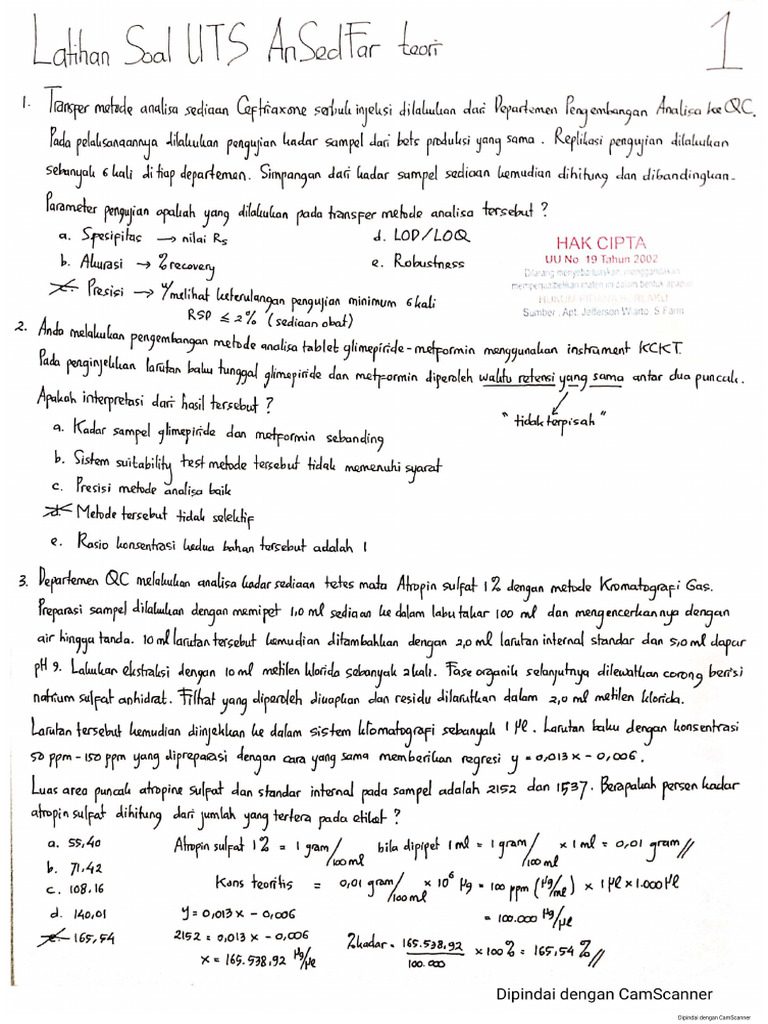 Latihan Soal UTS AnSedFar teori
1
1. Transfer metode analisa sediaan Ceftriaxone serbuk injeksi dilakukan dari Departemen Pengembangan Analisa ke QC.
Pada pelaksanaannya dilakukan pengujian kadar sampel dari bets produksi yang sama. Replikasi pengujian dilakukan
sebanyak 6 kali di tiap departemen. Simpangan dari kadar sampel sediaan kemudian dihitung dan dibandingkan.
Parameter pengujian apakah yang dilakukan pada transfer metode analisa tersebut?
a. Spesifitas → nilai Rs
b. Akurasi → % recovery
c. Presisi → u/ melihat keterulangan pengujian minimum 6 kali
RSD ≤ 2% (sediaan obat)
d. LOD/LOQ
e. Robustness
HAK CIPTA
UU No 19 Tahun 2002
Dilarang menyebarluaskan, menggandakan
memperjualbelikan materi ini dalam bentuk apapun
Sumber : Apt. Jefferson Wiarto, S.Farm
2. Ando melakukan pengembangan metode analisa tablet glimepiride-metformin menggunakan instrument KCKT.
Pada penginjekkan larutan baku tunggal glimepiride dan metformin diperoleh waktu retensi yang sama antar dua puncak.
Apakah interpretasi dari hasil tersebut?
"tidak terpisah"
a. Kadar sampel glimepiride dan metformin sebanding
b. Sistem suitability test metode tersebut tidak memenuhi syarat
c. Presisi metode analisa baik
d. Metode tersebut tidak selektif
e. Rasio konsentrasi kedua bahan tersebut adalah 1
3. Departemen QC melakukan analisa kadar sediaan tetes mata Atropin sulfat 1% dengan metode Kromatografi Gas.
Preparasi sampel dilakukan dengan memipet 1,0 ml sediaan ke dalam labu takar 100 ml dan mengencerkannya dengan
air hingga tanda. 10 ml larutan tersebut kemudian ditambahkan dengan 2,0 ml larutan internal standar dan 5,0 ml dapar
pH 9. Lakukan ekstraksi dengan 10 ml metilen klorida sebanyak 2 kali. Fase organik selanjutnya dilewatkan corong berisi
natrium sulfat anhidrat. Filtrat yang diperoleh diuapkan dan residu dilarutkan dalam 2,0 ml metilen klorida.
Larutan tersebut kemudian diinjekkan ke dalam sistem kromatografi sebanyak 1 µl. Larutan baku dengan konsentrasi
50 ppm - 150 ppm yang dipreparasi dengan cara yang sama memberikan regresi y = 0,013x - 0,006.
Luas area puncak atropine sulfat dan standar internal pada sampel adalah 2152 dan 1537. Berapakah persen kadar
atropin sulfat dihitung dari jumlah yang tertera pada etiket?
a. 55,40
b. 71,42
c. 108,16
d. 140,01
e. 165,54
Atropin sulfat 1% = 1 gram/100 ml bila dipipet 1 ml = 1 gram/100 ml × 1 ml = 0,01 gram //
Kons teoritis = 0,01 gram/100 ml × 10⁶ µg = 100 ppm (µg/ml) × 1 µl × 1.000 µl
= 100.000 µg/µl
y = 0,013x - 0,006
2152 = 0,013x - 0,006
x = 165.538,92 µg/µl
% kadar = 165.538,92/100.000 × 100% = 165,54 % //
Dipindai dengan CamScanner
Dipindai dengan CamScanner